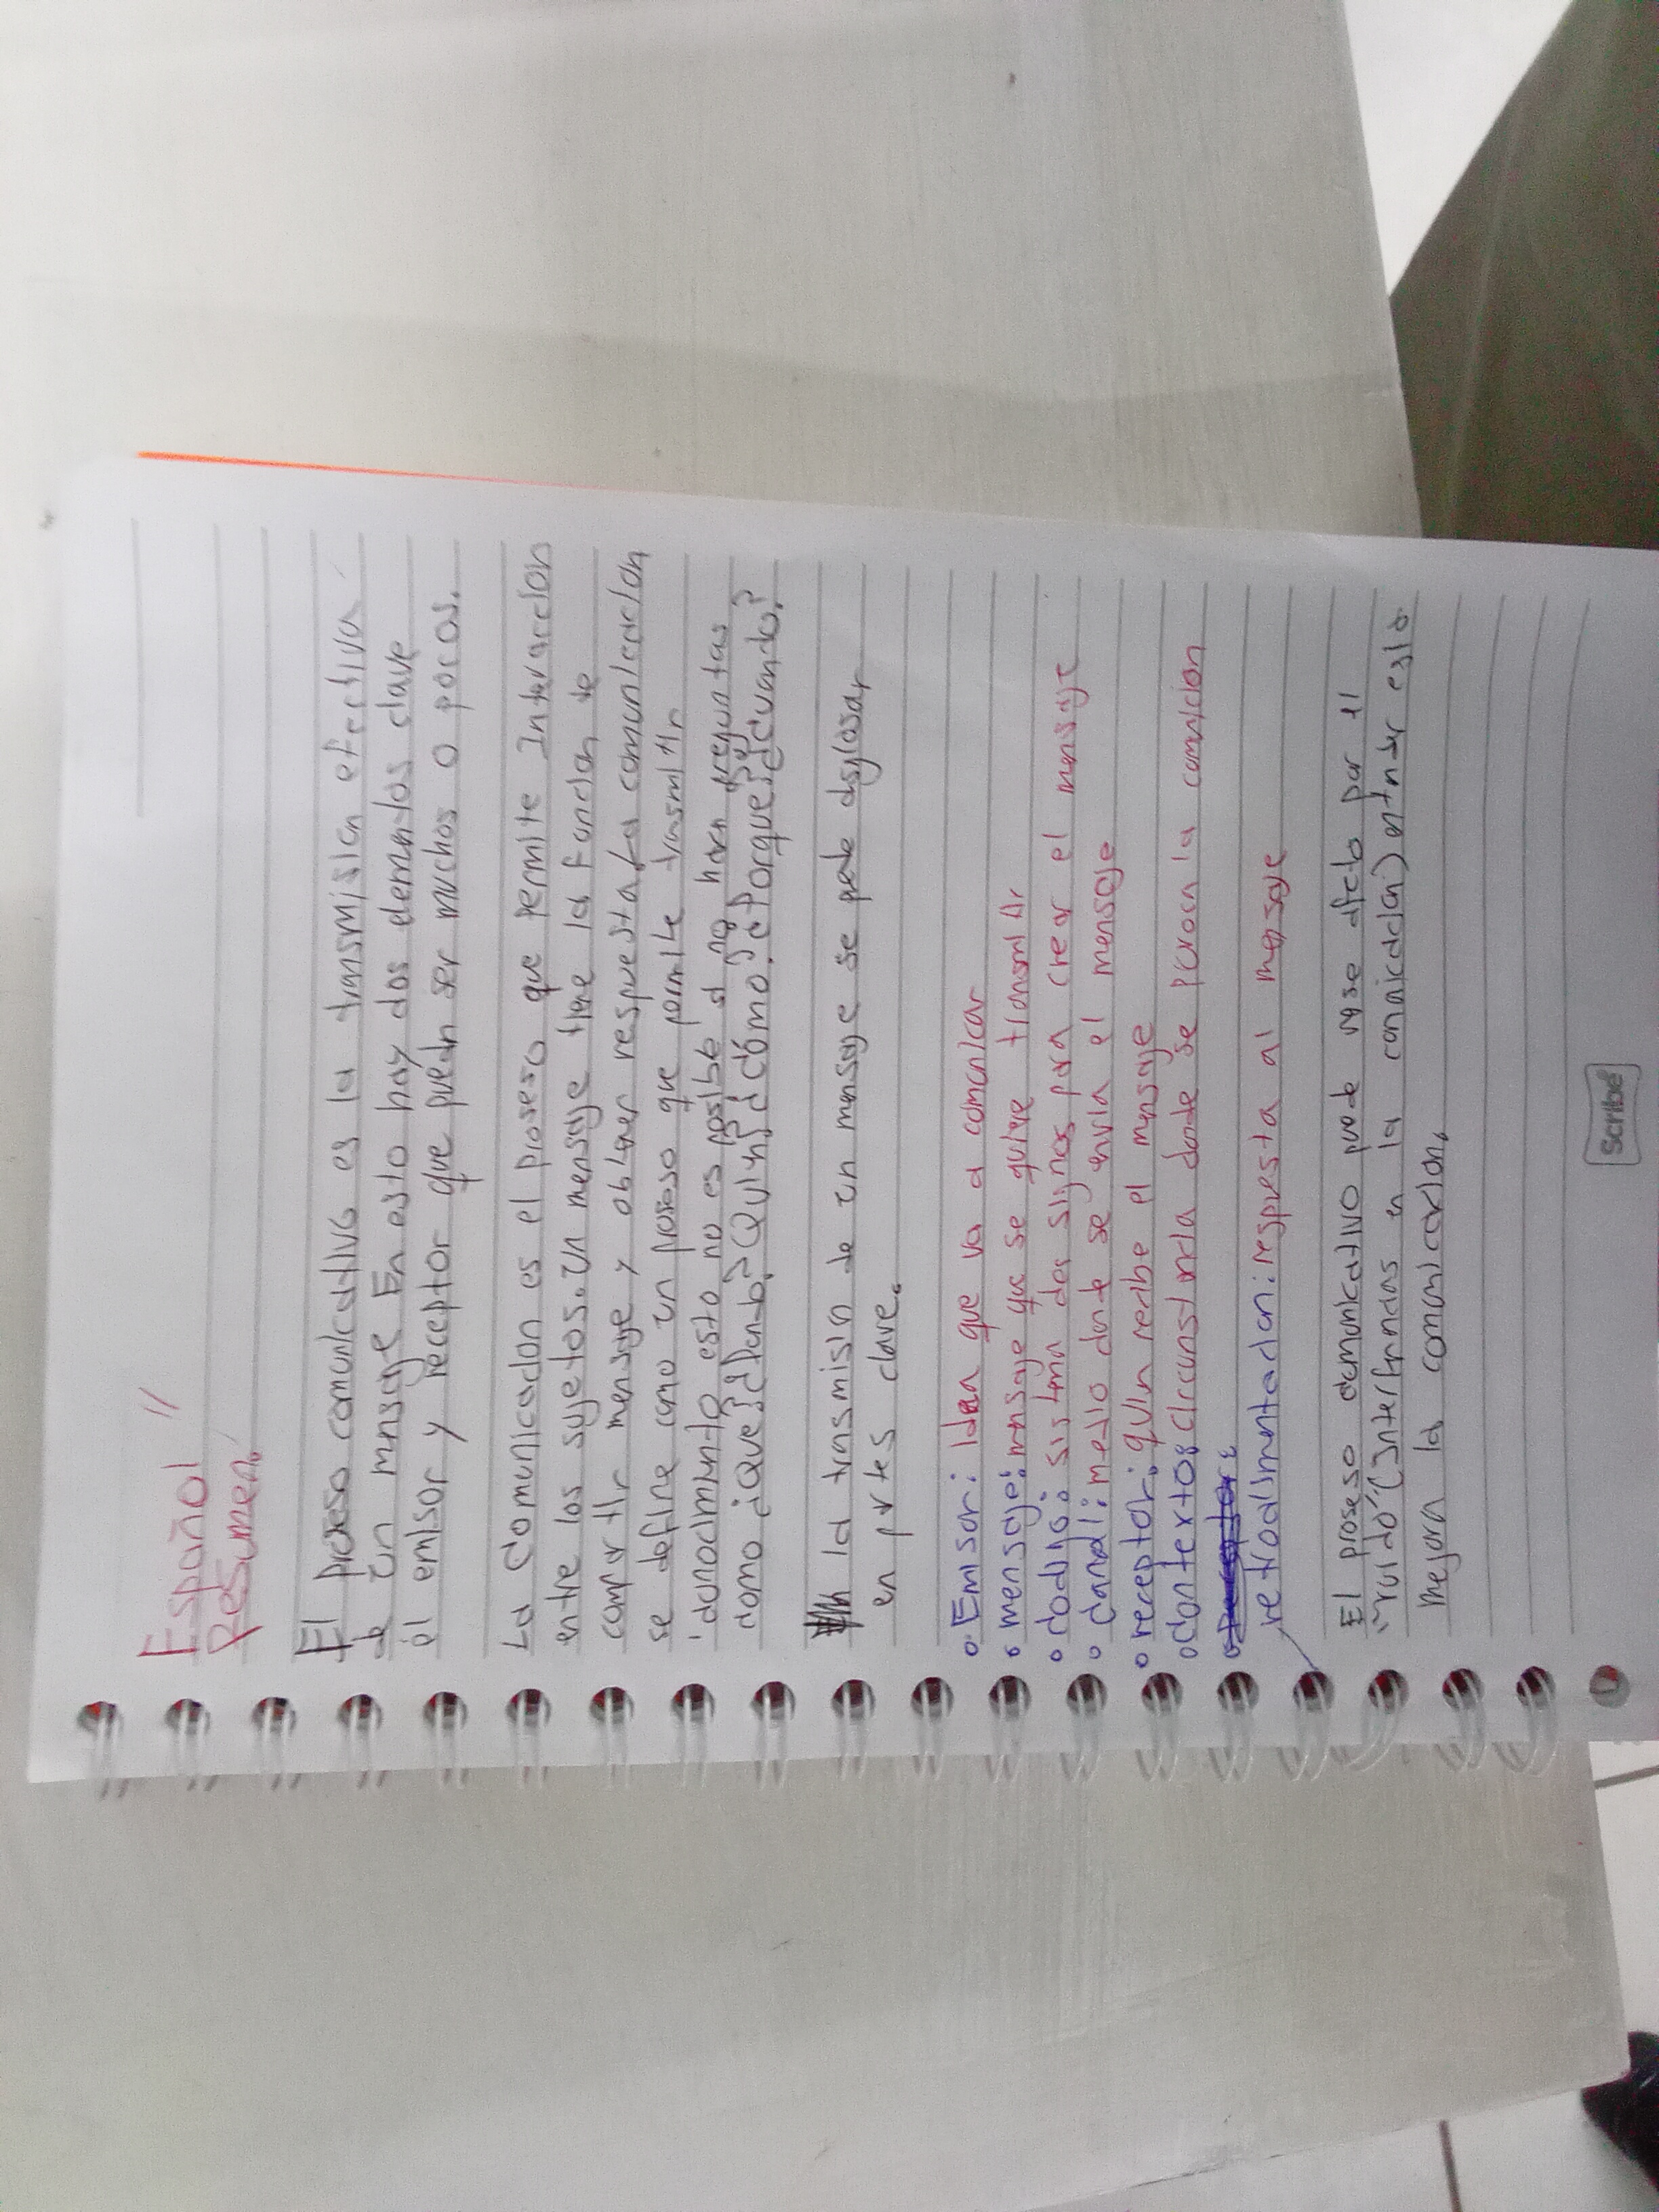 Español //
Resumen.
El proseso comunicativo es la trasmision efectiva
de un mnsaje En esto hay dos elementos clave
el emisor y receptor que puedn ser muchos o pocos.
La Comunicacion es el proseso que permite Interaccion
entre los sujetos. un mensaje tiene la funcion de
compartir mensaje y obtener respuesta. La comunicacion
se define como un proseso que permite trasmitir
conocimiento esto no es posible si no hacn preguntas
como ¿Que? ¿Donde? ¿Quien? ¿Cómo? ¿Porque? ¿cuando?
la trasmision de un mensaje se pede dsglosar
en prtes clave.
• Emisor: Idea que va a comunicar
• mensaje: mnsaje que se quiere transmitir
• codigo: sistema dos signos para crear el mensaje
• canal: medio donde se envia el mensaje
• receptor: quien recibe el mensaje
• contexto: circunstancia donde se la comicion
retroalimentacion: respuesta al mensaje
El proseso comunicativo puede verse afecto por el
"ruido" (Interfrncias en la comnicacion) entnder esto
mejora la comunicacion.
Scribe